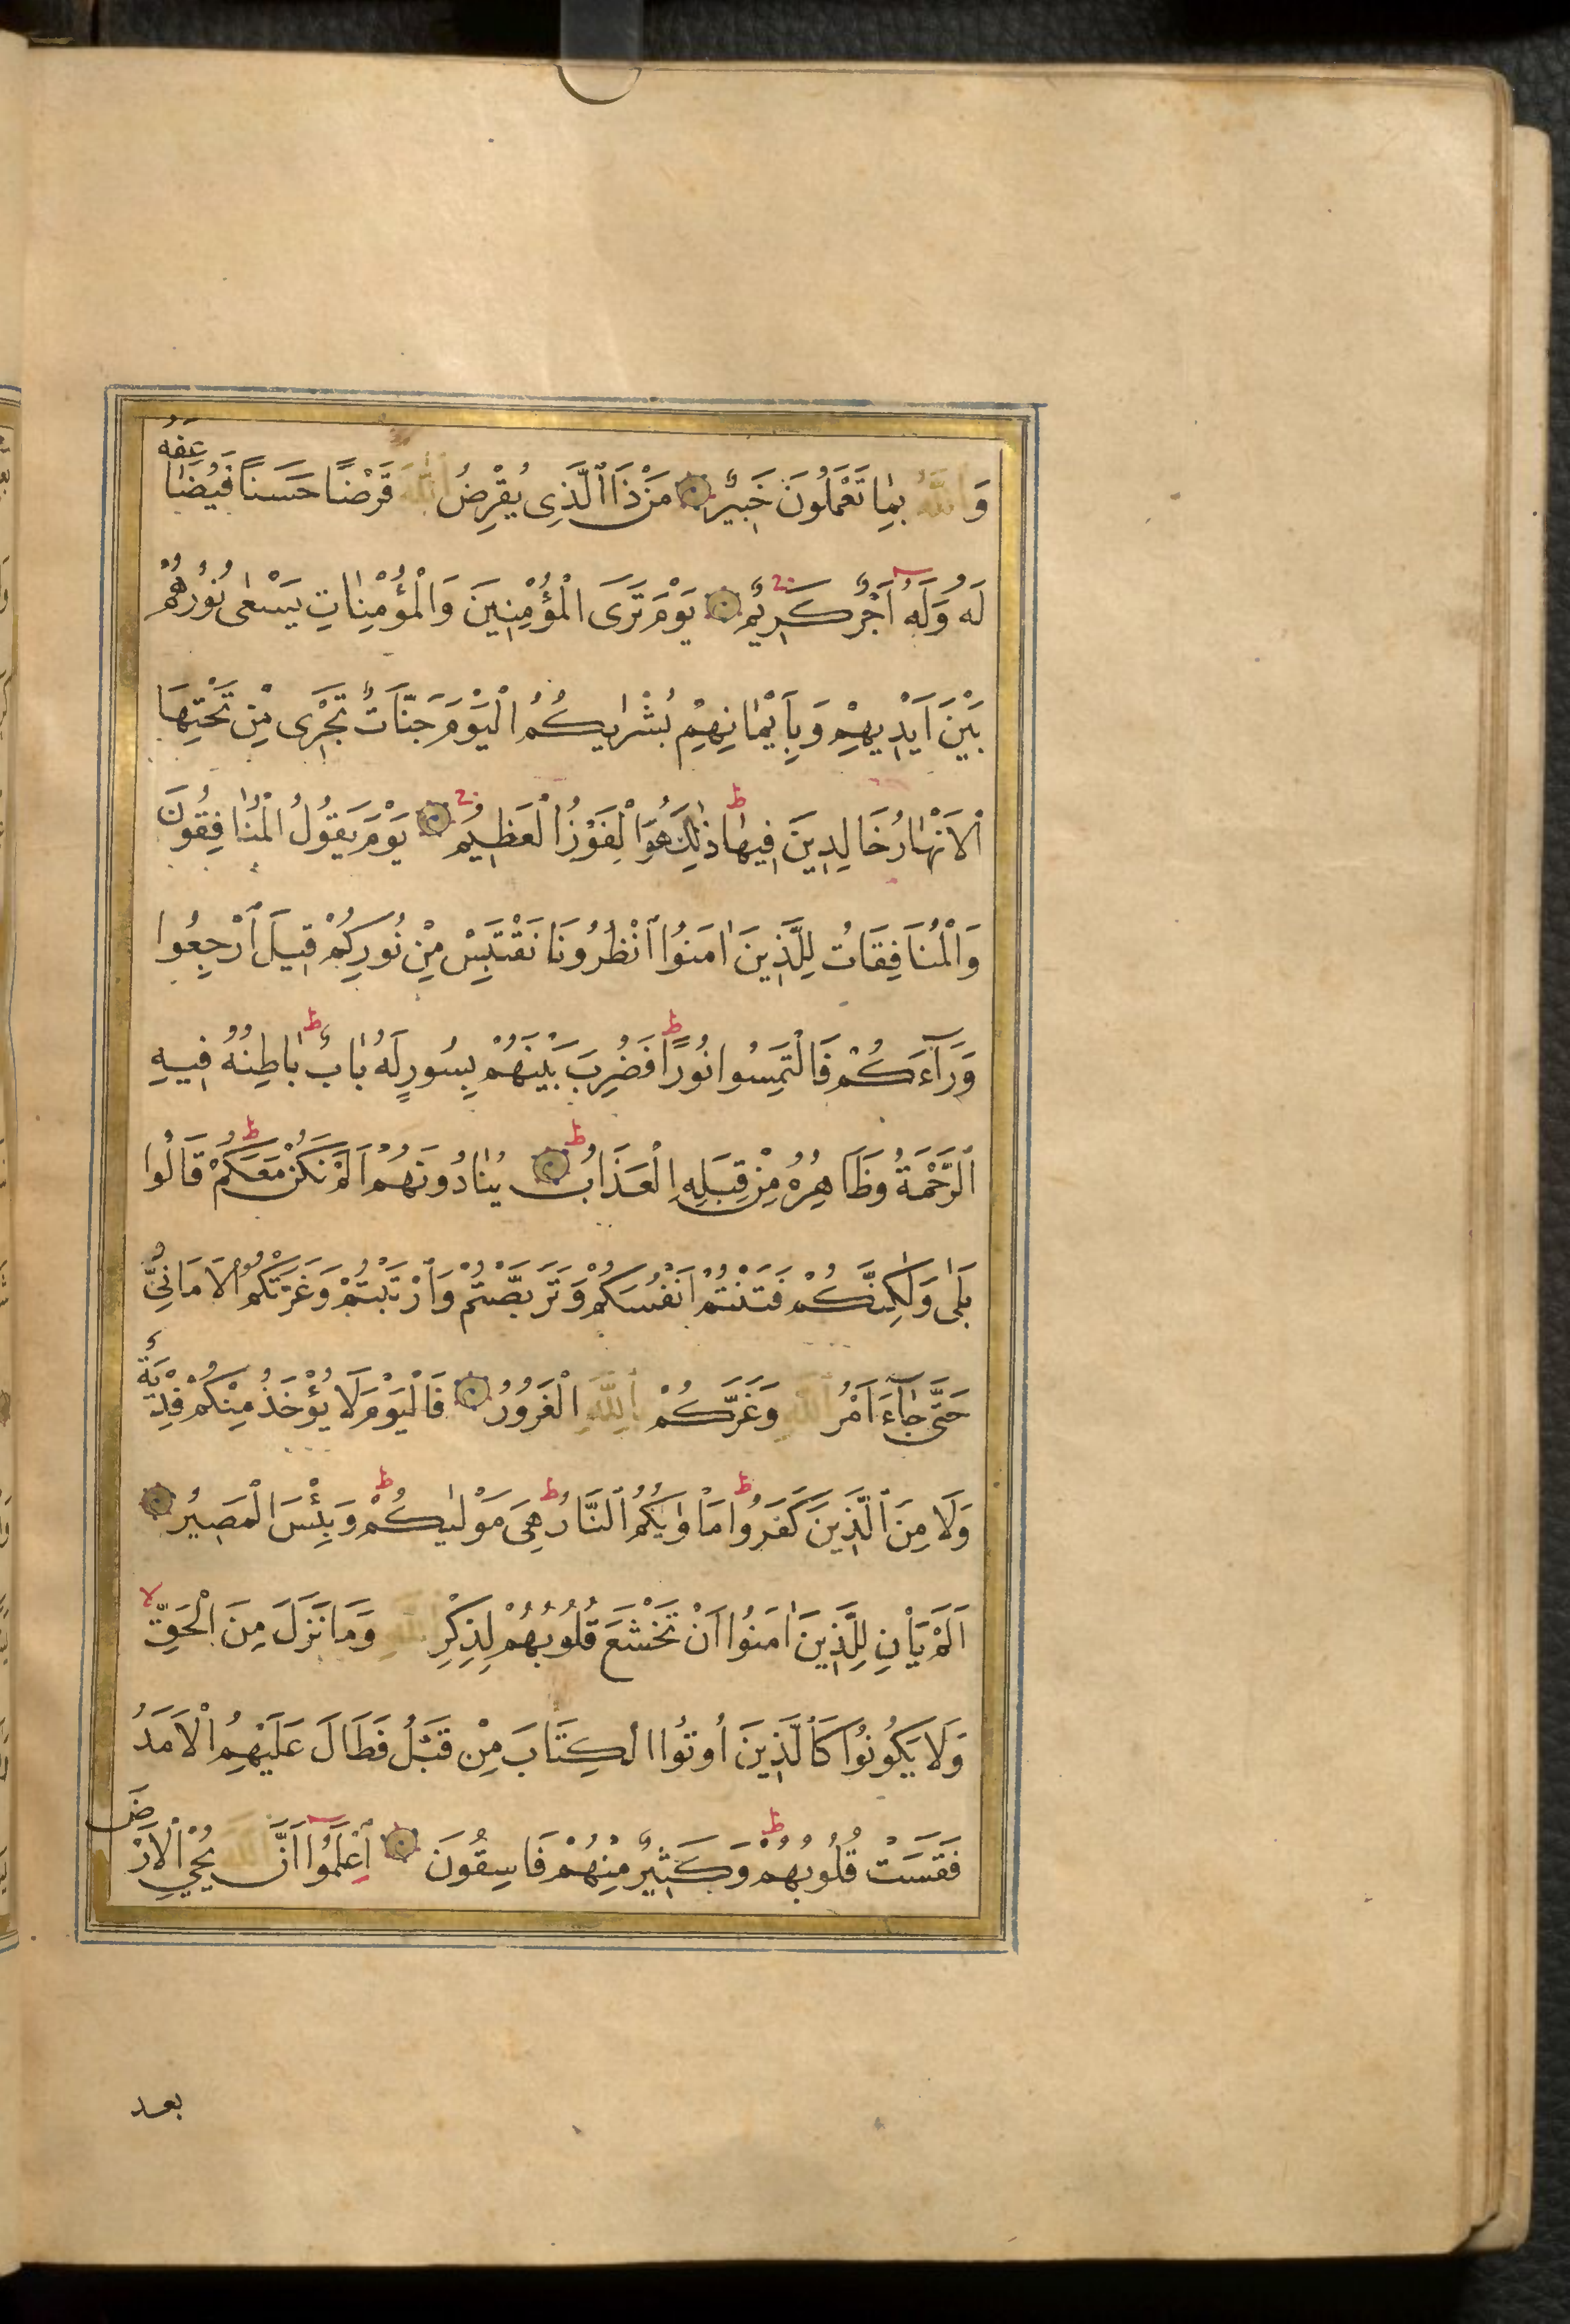 وَاللهُ بِمَا تَعْمَلُونَ خَبِيرٌ مَنْ ذَا الَّذِى يُقْرِضُ اللهَ قَرْضًا حَسَنًا فَيُضَاعِفَهُ
لَهُ وَلَهُ اَجْرٌ كَرِيمٌ يَوْمَ تَرَى الْمُؤْمِنِينَ وَالْمُؤْمِنَاتِ يَسْعٰى نُورُهُمْ
بَيْنَ اَيْدِيهِمْ وَبِاَيْمَانِهِمْ بُشْرٰيكُمُ الْيَوْمَ جَنَّاتٌ تَجْرِى مِنْ تَحْتِهَا
الْاَنْهَارُ خَالِدِينَ فِيهَا ط ذٰلِكَ هُوَ الْفَوْزُ الْعَظِيمُ يَوْمَ يَقُولُ الْمُنَافِقُونَ
وَالْمُنَافِقَاتُ لِلَّذِينَ اٰمَنُوا انْظُرُونَا نَقْتَبِسْ مِنْ نُورِكُمْ قِيلَ ارْجِعُوا
وَرَآءَكُمْ فَالْتَمِسُوا نُورًا ط فَضُرِبَ بَيْنَهُمْ بِسُورٍ لَهُ بَابٌ ط بَاطِنُهُ فِيهِ
الرَّحْمَةُ وَظَاهِرُهُ مِنْ قِبَلِهِ الْعَذَابُ ط يُنَادُونَهُمْ اَلَمْ نَكُنْ مَعَكُمْ ط قَالُوا
بَلٰى وَلٰكِنَّكُمْ فَتَنْتُمْ اَنْفُسَكُمْ وَتَرَبَّصْتُمْ وَارْتَبْتُمْ وَغَرَّتْكُمُ الْاَمَانِىُّ
حَتّٰى جَآءَ اَمْرُ اللهِ وَغَرَّكُمْ بِاللهِ الْغَرُورُ فَالْيَوْمَ لَا يُؤْخَذُ مِنْكُمْ فِدْيَةٌ
وَلَا مِنَ الَّذِينَ كَفَرُوا ط مَاْوٰيكُمُ النَّارُ ط هِىَ مَوْلٰيكُمْ ط وَبِئْسَ الْمَصِيرُ
اَلَمْ يَاْنِ لِلَّذِينَ اٰمَنُوا اَنْ تَخْشَعَ قُلُوبُهُمْ لِذِكْرِ اللهِ وَمَا نَزَلَ مِنَ الْحَقِّ لا
وَلَا يَكُونُوا كَالَّذِينَ اُوتُوا الْكِتَابَ مِنْ قَبْلُ فَطَالَ عَلَيْهِمُ الْاَمَدُ
فَقَسَتْ قُلُوبُهُمْ ط وَكَثِيرٌ مِنْهُمْ فَاسِقُونَ اِعْلَمُوا اَنَّ اللهَ يُحْيِى الْاَرْضَ
بعد